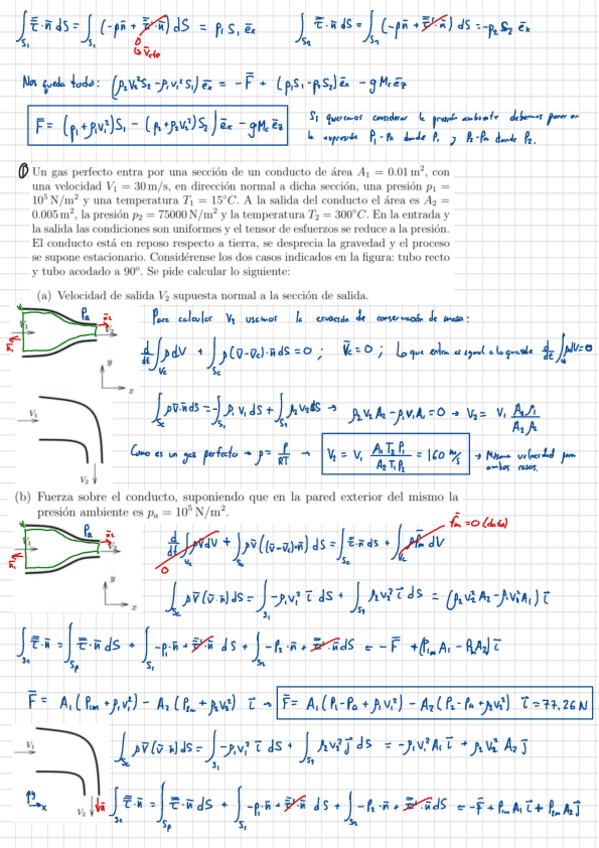 ∫_{S₁} τ̿·n̄ dS = ∫_{S₁} (-p n̄ + τ̿'·n̄) dS = p₁ S₁ ēx   ∫_{S₂} τ̿·n̄ dS = ∫_{S₂} (-p n̄ + τ̿'·n̄) dS = -p₂ S₂ ēx
0
Nos queda todo: (ρ₂V₂²S₂ - ρ₁V₁²S₁) ēx = -F̄ + (p₁S₁ - p₂S₂) ēx - g Mc ēz
F̄ = (p₁ + ρ₁V₁²) S₁ - (p₂ + ρ₂V₂²) S₂) ēx - g Mc ēz
Si queremos considerar la presión ambiente debemos poner en
la expresión P₁-Pa donde P₁ y P₂-Pa donde P₂.
① Un gas perfecto entra por una sección de un conducto de área A₁ = 0.01 m², con
una velocidad V₁ = 30 m/s, en dirección normal a dicha sección, una presión p₁ =
10⁵ N/m² y una temperatura T₁ = 15°C. A la salida del conducto el área es A₂ =
0.005 m², la presión p₂ = 75000 N/m² y la temperatura T₂ = 300°C. En la entrada y
la salida las condiciones son uniformes y el tensor de esfuerzos se reduce a la presión.
El conducto está en reposo respecto a tierra, se desprecia la gravedad y el proceso
se supone estacionario. Considérense los dos casos indicados en la figura: tubo recto
y tubo acodado a 90º. Se pide calcular lo siguiente:
(a) Velocidad de salida V₂ supuesta normal a la sección de salida.
Para calcular V₂ usamos la ecuación de conservación de masa:
Pa
n̄₂
V₁
V₂
d/dt ∫_{Vc} ρ dV + ∫_{Sc} ρ (v̄ - v̄c)·n̄ dS = 0 ; v̄c = 0 ; Lo que entra es igual a lo que sale d/dt ∫ ρ dV = 0
y
x
V₁
∫_{Sc} ρ v̄·n̄ dS = -∫_{S₁} ρ₁ V₁ dS + ∫_{S₂} ρ₂ V₂ dS → ρ₂V₂A₂ - ρ₁V₁A₁ = 0 → V₂ = V₁ A₁ρ₁/A₂ρ₂
Como es un gas perfecto → ρ = P/RT → V₂ = V₁ A₁T₂P₁/A₂T₁P₂ = 160 m/s → Misma velocidad para
ambos casos.
V₂
(b) Fuerza sobre el conducto, suponiendo que en la pared exterior del mismo la
presión ambiente es pₐ = 10⁵ N/m².
f̄m = 0 (dato)
Pa
n̄₂
V₁
V₂
d/dt ∫_{Vc} ρv̄ dV + ∫_{Sc} ρv̄ ((v̄ - v̄c)·n̄) dS = ∫_{Sc} τ̿·n̄ dS + ∫_{Vc} ρf̄m dV
0
y
x
∫_{Sc} ρv̄ (v̄·n̄) dS = ∫_{S₁} -ρ₁V₁² ī dS + ∫_{S₂} ρ₂V₂² ī dS = (ρ₂V₂²A₂ - ρ₁V₁²A₁) ī
∫_{Sc} τ̿·n̄ dS = ∫_{Sp} τ̿·n̄ dS + ∫_{S₁} -p₁·n̄ + τ̿'·n̄ dS + ∫_{S₂} -P₂·n̄ + τ̿'·n̄ dS = -F̄ + (P₁ₘA₁ - P₂ₘA₂) ī
F̄ = A₁ (P₁ₘ + ρ₁V₁²) - A₂ (P₂ₘ + ρ₂V₂²) ī → F̄ = A₁ (P₁ - Pa + ρ₁V₁²) - A₂ (P₂ - Pa + ρ₂V₂²) ī = 77,26 N
V₁
∫_{Sc} ρv̄ (v̄·n̄) dS = ∫_{S₁} -ρ₁V₁² ī dS + ∫_{S₂} ρ₂V₂² j̄ dS = -ρ₁V₁²A₁ ī + ρ₂V₂²A₂ j̄
y
x
V₂
n̄
∫_{Sc} τ̿·n̄ dS = ∫_{Sp} τ̿·n̄ dS + ∫_{S₁} -p₁·n̄ + τ̿'·n̄ dS + ∫_{S₂} -P₂·n̄ + τ̿'·n̄ dS = -F̄ + P₁ₘA₁ ī + P₂ₘA₂ j̄